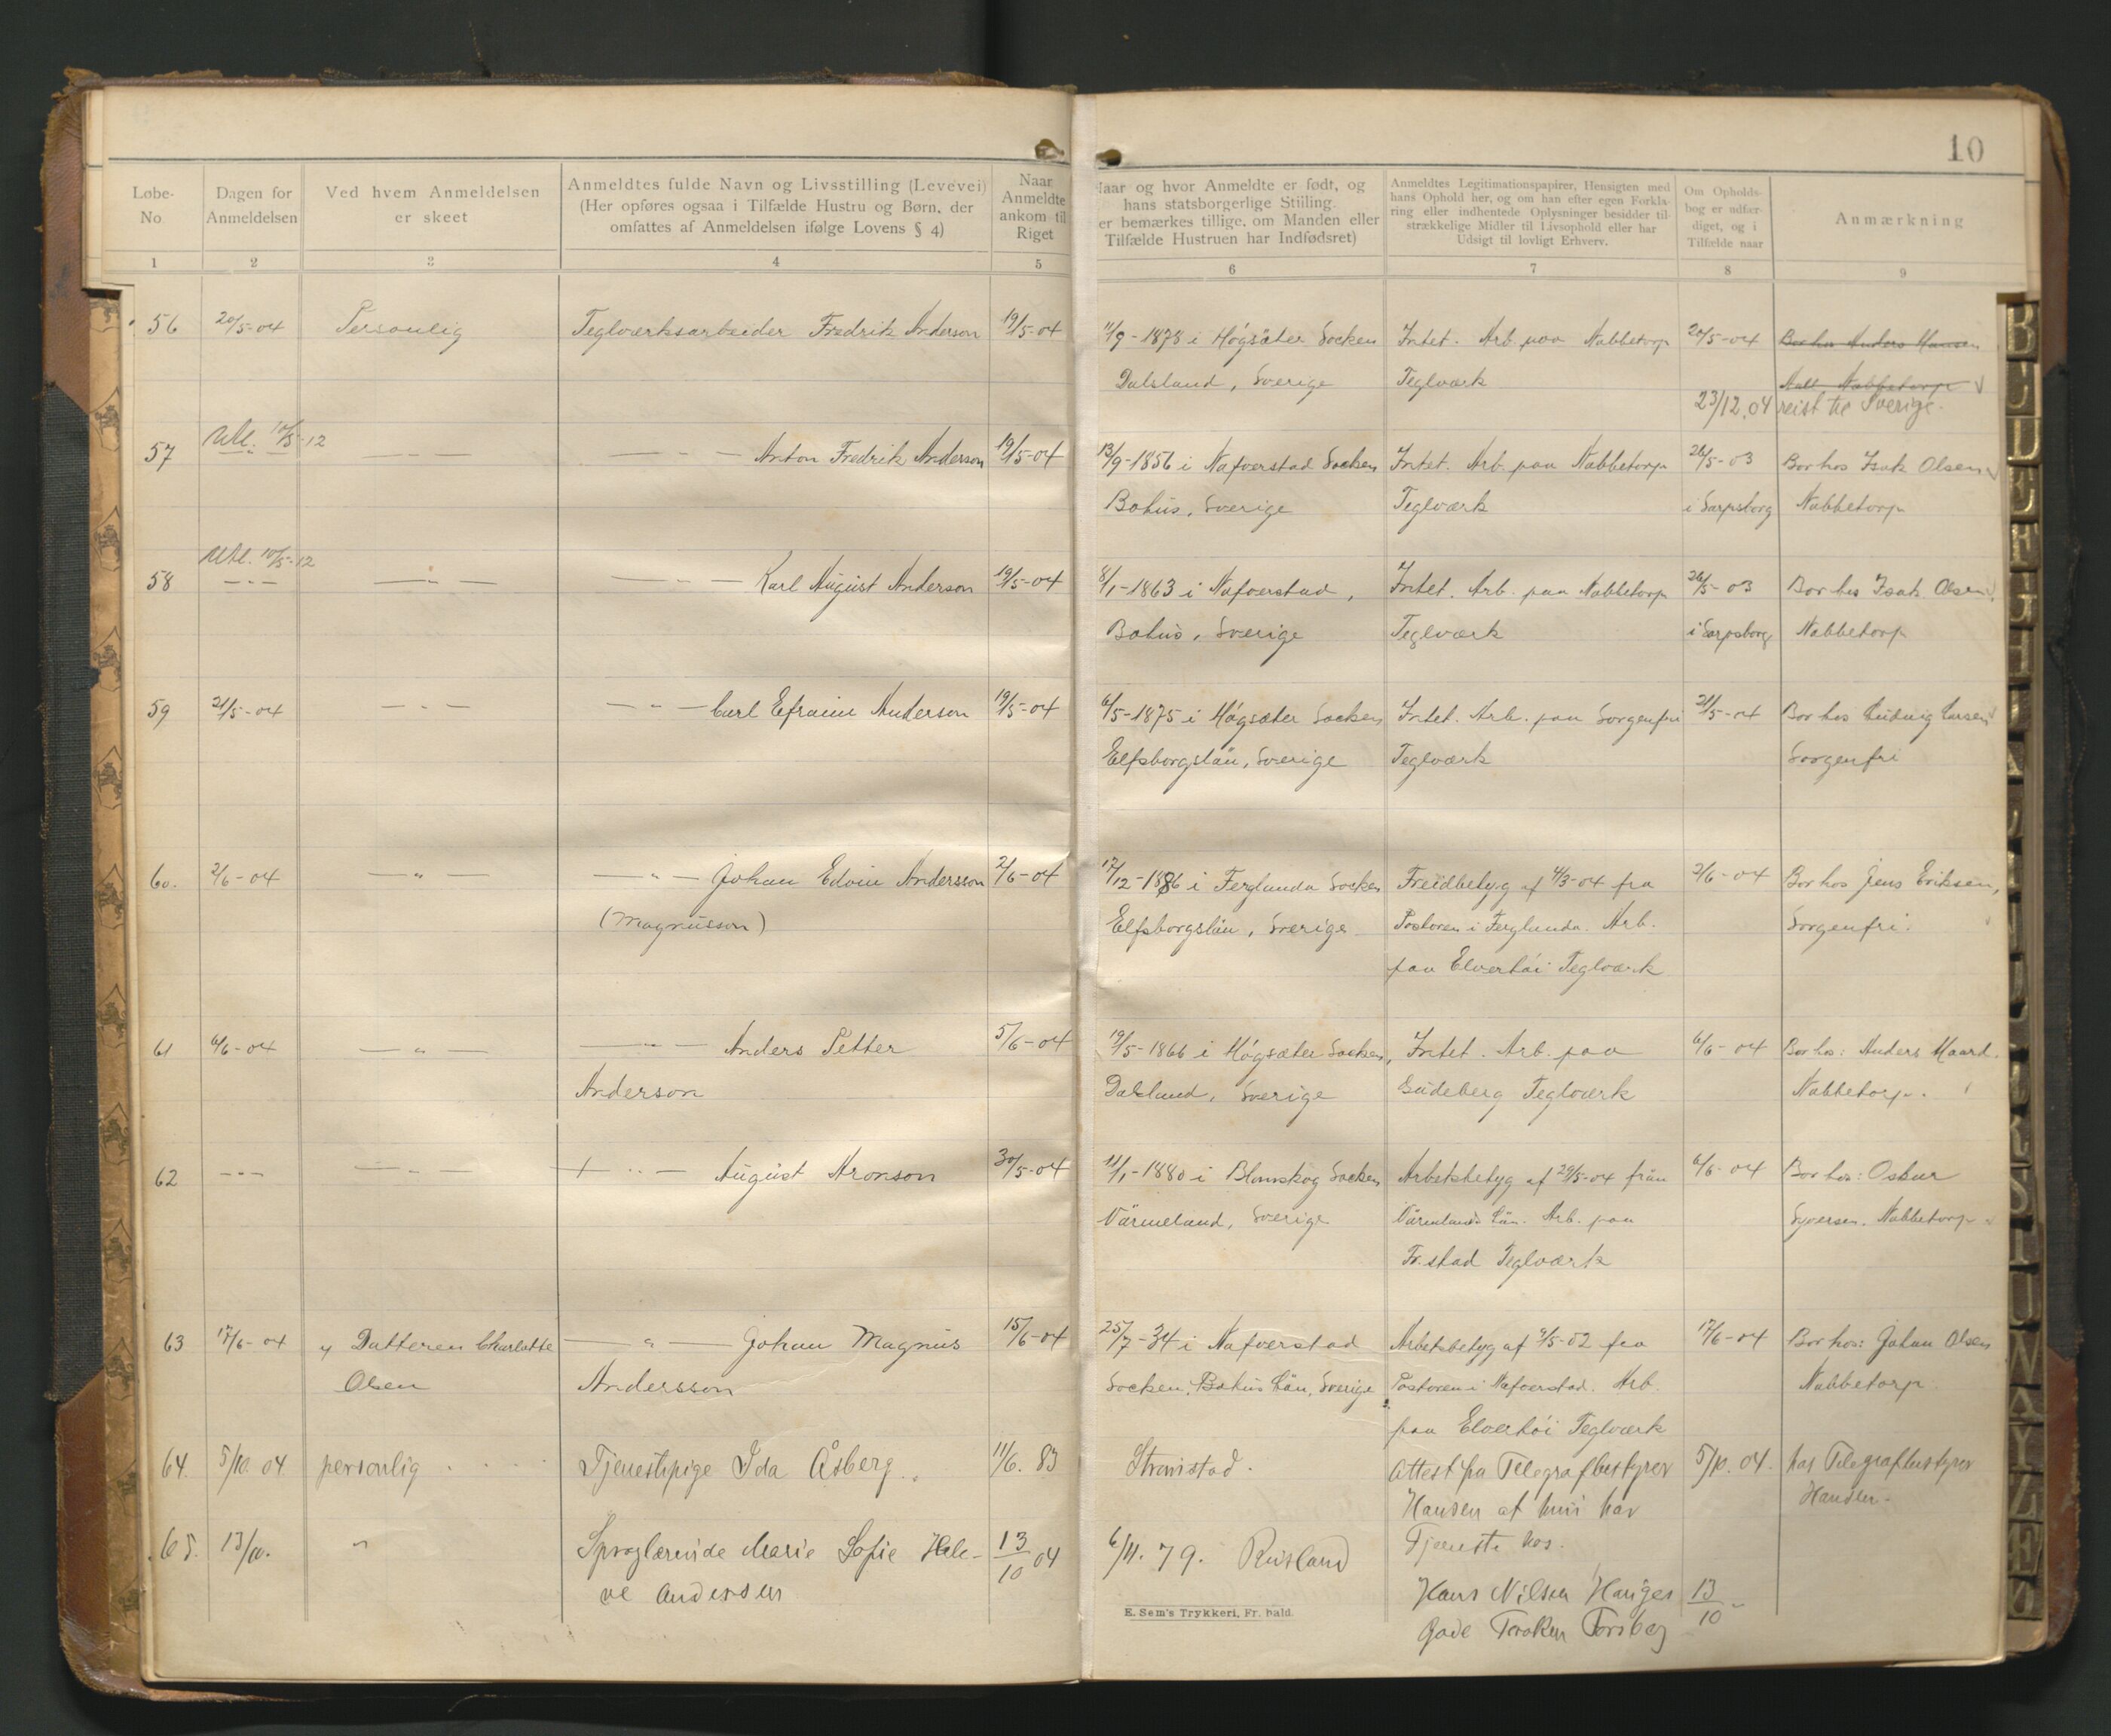 10
Løbe-
No.
Dagen for
Anmeldelsen
Ved hvem Anmeldelsen
er skeet
Anmeldtes fulde Navn og Livsstilling (Levevei)
(Her opføres ogsaa i Tilfælde Hustru og Børn, der
omfattes af Anmeldelsen ifølge Lovens § 4)
Naar
Anmeldte
ankom til
Riget
Naar og hvor Anmeldte er født, og
hans statsborgerlige Stiiling.
er bemærkes tillige, om Manden eller
Tilfælde Hustruen har Indfødsret)
Anmeldtes Legitimationspapirer, Hensigten med
hans Ophold her, og om han efter egen Forkla-
ring eller indhentede Oplysninger besidder til-
strækkelige Midler til Livsophold eller har
Udsigt til lovligt Erhverv.
Om Opholds-
bog er udfær-
diget, og i
Tilfælde naar
Anmærkning
1 2 3 4 5 6 7 8 9
56 20/5-04 Personlig Teglværksarbeider Fredrik Anderson 19/5-04 11/9-1878 i Högsäter Socken Intet. Arb. paa Nabbetorp 20/5-04 Bor hos Anders Hansen
Dalsland, Sverige Teglværk Nabbetorp
23/12.04 reist til Sverige.
Udl. 10/5-12
57 — " — — " — Anton Fredrik Anderson 19/5-04 13/9-1856 i Nafverstad Socken Intet. Arb. paa Nabbetorp 26/5-03 Bor hos Isak Olsen
Bohus, Sverige Teglværk i Sarpsborg Nabbetorp
Udl. 10/5-12
58 — " — — " — — " — Karl August Anderson 19/5-04 8/1-1863 i Nafverstad, Intet. Arb. paa Nabbetorp 26/5-03 Bor hos Isak Olsen,
Bohus, Sverige Teglværk i Sarpsborg Nabbetorp
59 21/5-04 — " — — " — Carl Efraim Anderson 19/5-04 6/5-1875 i Högsæter Socken Intet. Arb. paa Sorgenfri 21/5-04 Bor hos Ludvig Larsen
Elfsborgslän, Sverige Teglværk Sorgenfri
60. 2/6-04 — " — — " — Johan Edvin Andersson 2/6-04 17/12-1886 i Ferglanda Socken Freidbetyg af 4/3-04 fra 2/6-04 Bor hos Jens Eriksen,
(Magnusson) Elfsborgslän, Sverige Pastoren i Ferglanda. Arb. Sorgenfri.
paa Elverhöi Teglværk
61 6/6-04 — " — — " — Anders Petter 5/6-04 19/5-1866 i Högsæter Socken, Intet. Arb. paa 6/6-04 Bor hos: Anders Haard.
Anderson Dalsland, Sverige Gudeberg Teglværk Nabbetorp.
62 — " — — " — + " — August Aronson 30/5-04 11/1-1880 i Blomskog Socken Arbetsbetyg af 29/5-04 från 6/6-04 Bor hos: Oskar
Värmeland, Sverige Värmlands Län. Arb. paa Syversen. Nabbetorp
Fr.stad Teglværk
63 17/6-04 " Datteren Charlotte — " — Johan Magnus 15/6-04 25/7-34 i Nafverstad Arbetsbetyg af 9/5-02 fra 17/6-04 Bor hos: Johan Olsen
Olsen Andersson Socken, Bohus Län, Sverige Pastoren i Nafverstad. Arb. Nabbetorp.
paa Elverhöi Teglværk
64. 5/10.04 personlig Tjenestepige Ida Åsberg 11/6. 83 Strømstad. Attest fra Telegrafbestyrer 5/10.04. hos Telegrafbestyrer
Hansen at hun har Hansen.
Tjeneste hos.
65. 13/10. " Sproglærerinde Marie Sofie Hele- 13/10 04 6/11.79. Rusland
ne Andersen Hans Nilsen 13/10 –
Gade
E. Sem's Trykkeri, Fr. hald.
B
D
E
F
G
H